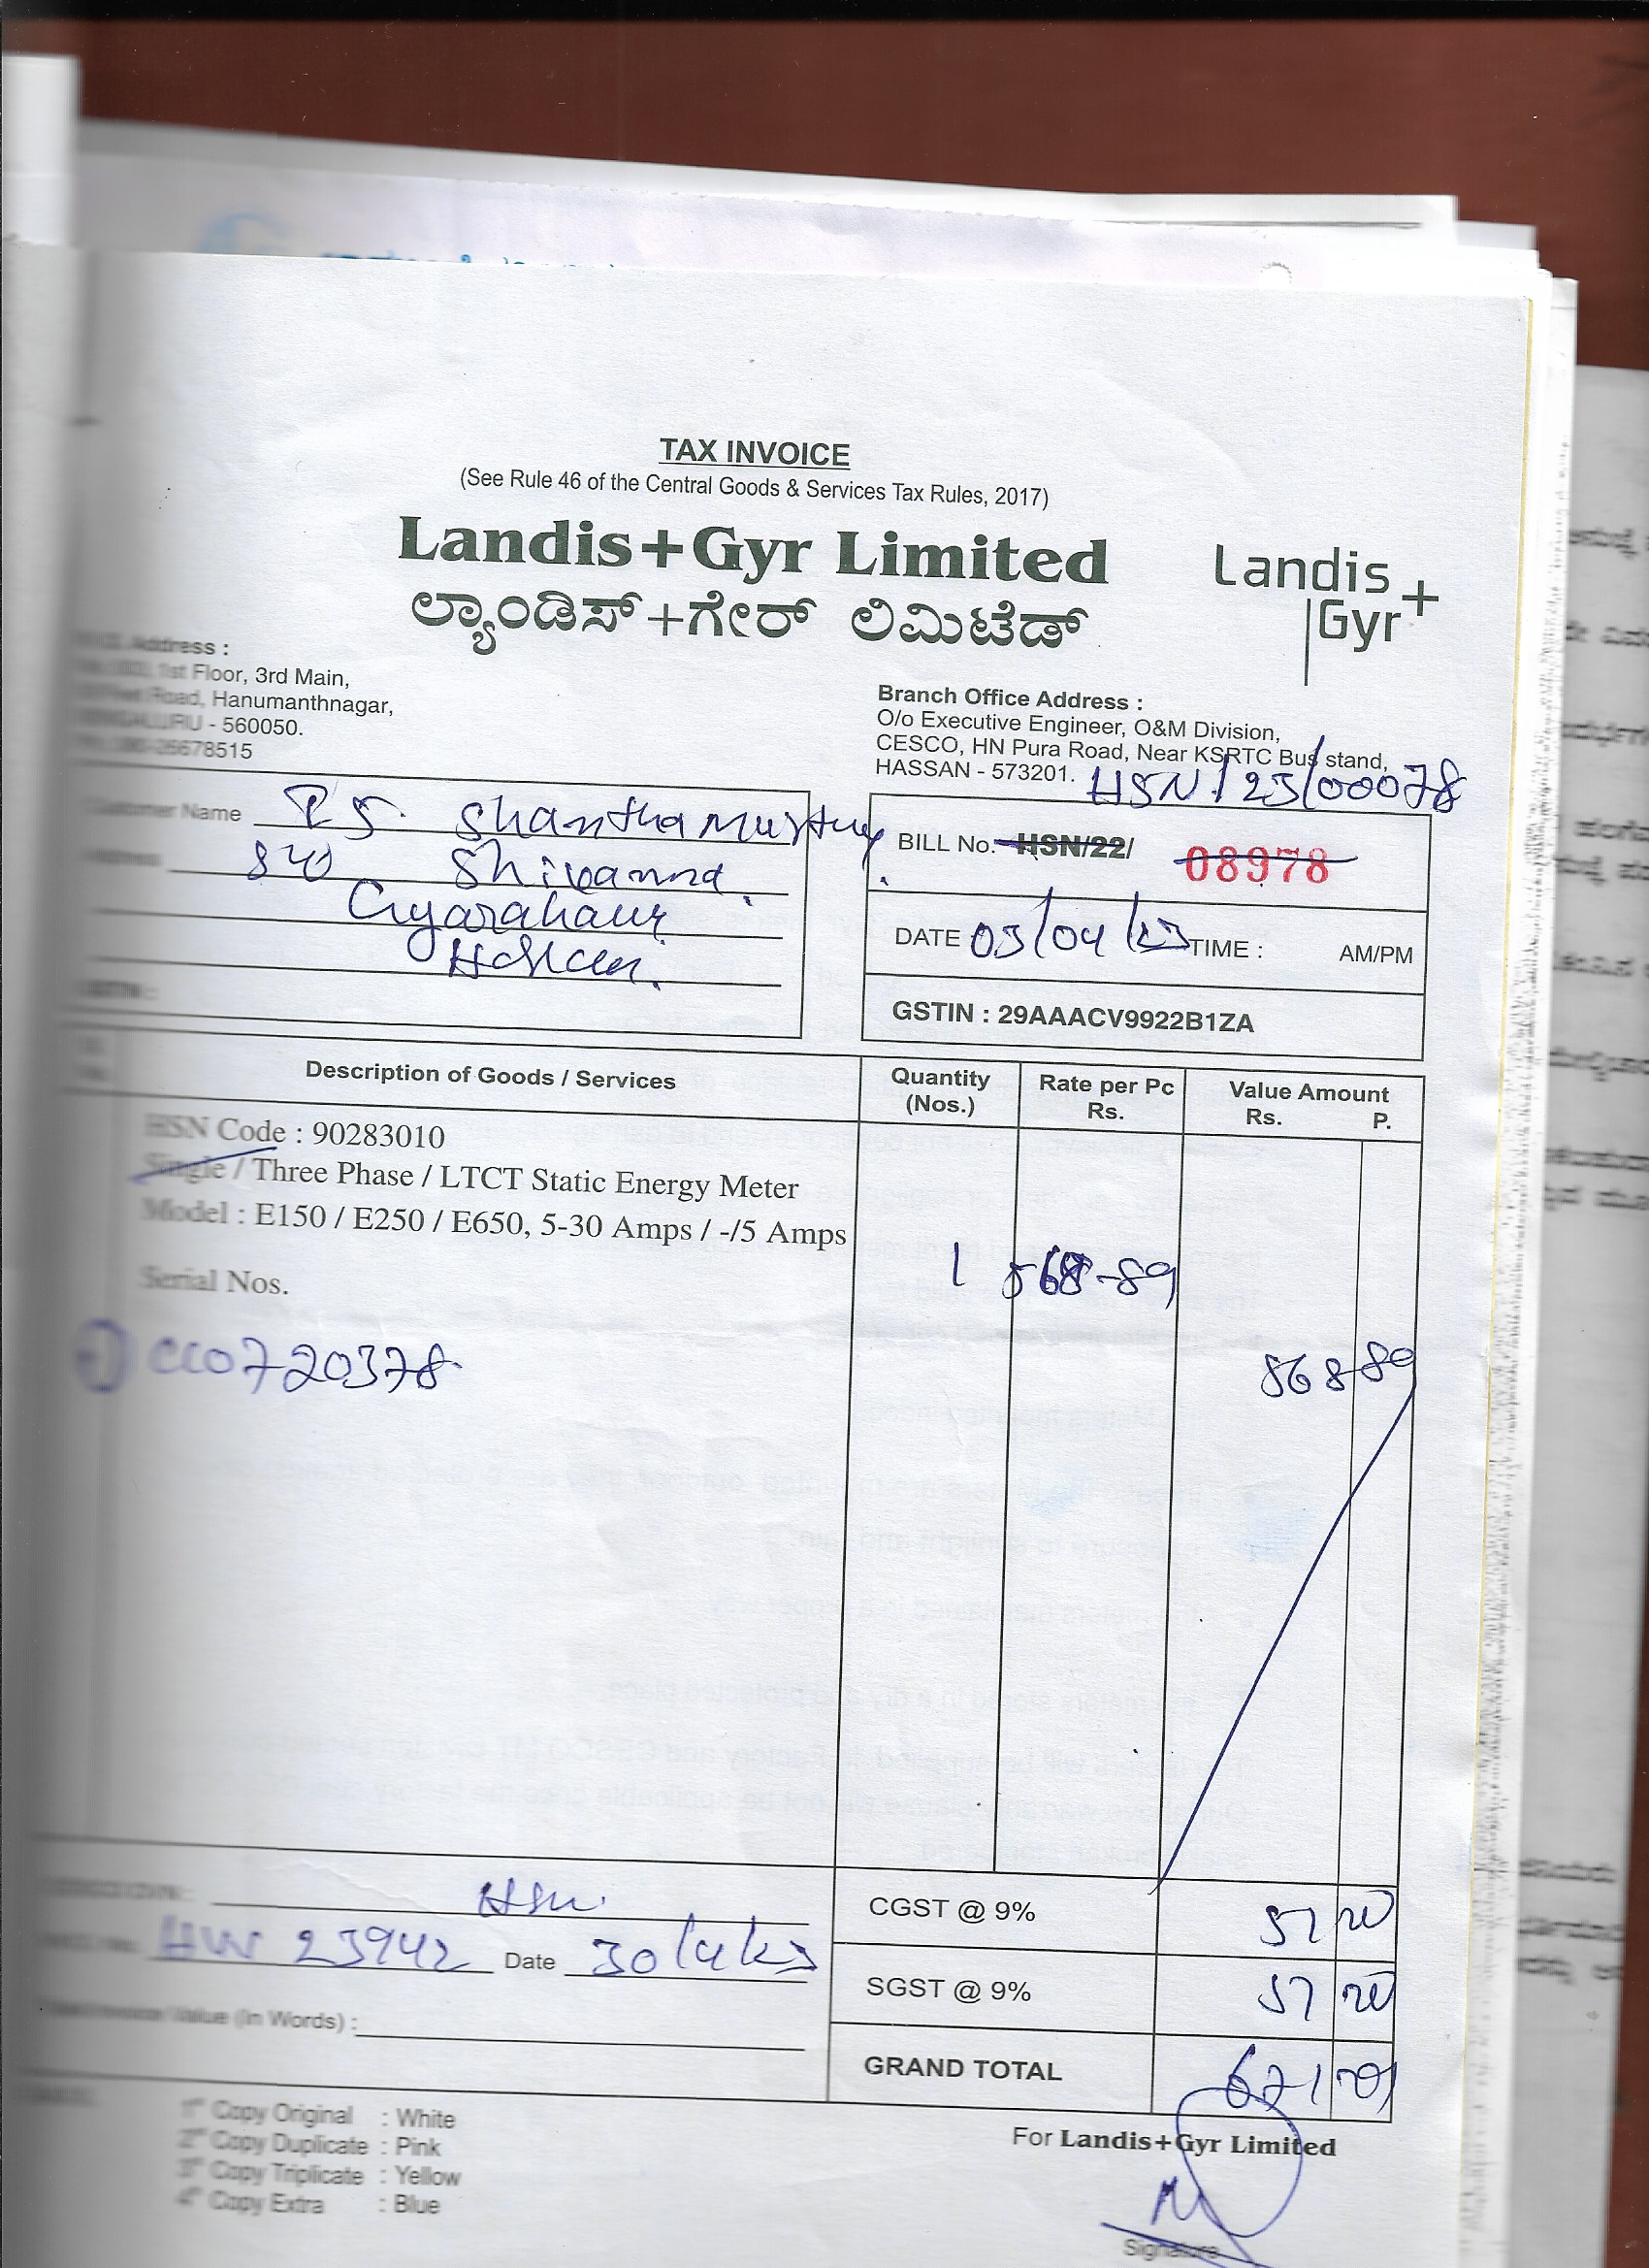 TAX INVOICE
(See Rule 46 of the Central Goods & Services Tax Rules, 2017)
Landis+Gyr Limited
ಲ್ಯಾಂಡಿಸ್+ಗೇರ್ ಲಿಮಿಟೆಡ್
Landis+
Gyr
Address :
1st Floor, 3rd Main,
Road, Hanumanthnagar,
BENGALURU - 560050.
26678515
Branch Office Address :
O/o Executive Engineer, O&M Division,
CESCO, HN Pura Road, Near KSRTC Bus stand,
HASSAN - 573201.
HSN/23/00078
Customer Name
Shanthamurthy
S/o Shivanna.
Hassan.
BILL No. HSN/22/ 08978
DATE 03/04/23 TIME : AM/PM
GSTIN : 29AAACV9922B1ZA
Description of Goods / Services
Quantity
(Nos.)
Rate per Pc
Rs.
Value Amount
Rs. P.
HSN Code : 90283010
Single / Three Phase / LTCT Static Energy Meter
Model : E150 / E250 / E650, 5-30 Amps / -/5 Amps
1 568-89
Serial Nos.
1) CC0720378
568 89
Hsn
CGST @ 9% 51 20
HW 23942 Date 30/4/23
SGST @ 9% 51 20
Value (In Words) :
GRAND TOTAL 671
1st Copy Original : White
2nd Copy Duplicate : Pink
3rd Copy Triplicate : Yellow
4th Copy Extra : Blue
For Landis+Gyr Limited
Signature